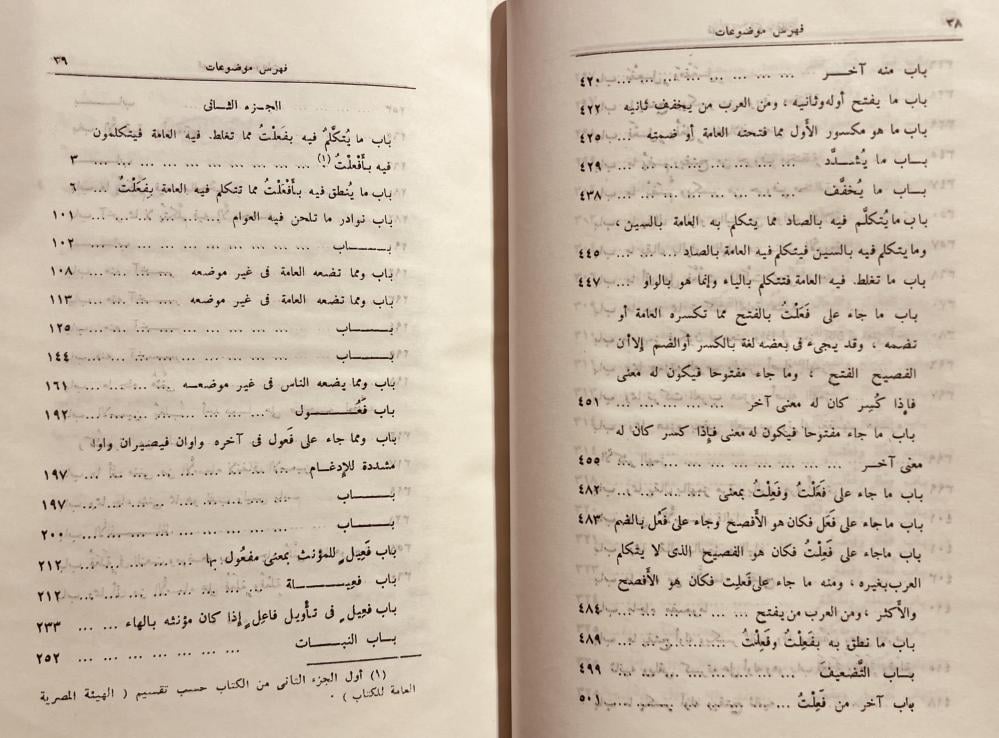 ٣٨
فهرس موضوعات
باب منه آخــر ... ... ... ... ... ... ... ٤٢٠
باب ما يفتح أوله وثانيه ، ومن العرب من يخفف ثانيه ٤٢٢
باب ما هو مكسور الأول مما فتحته العامة أو ضمته ... ٤٢٥
بــاب ما يُشَدَّد ... ... ... ... ... ... ... ٤٢٩
بــاب ما يُخَفَّف ... ... ... ... ... ... ... ٤٣٨
باب ما يُتكلَّم فيه بالصاد مما يتكلم به العامة بالسين ،
وما يتكلم فيه بالسين فيتكلم فيه العامة بالصاد ... ... ٤٤٥
باب ما تغلط فيه العامة فتتكلم بالياء وإنما هو بالواو ... ٤٤٧
باب ما جاء على فَعَلْتُ بالفتح مما تكسره العامة أو
تضمه ، وقد يجىء فى بعضه لغة بالكسر أوالضم إلاأن
الفصيح الفتح ، وما جاء مفتوحا فيكون له معنى
فإذا كُسِر كان له معنى آخر ... ... ... ... ... ٤٥١
باب ما جاء مفتوحا فيكون له معنى فإذا كسر كان له
معنى آخــر ... ... ... ... ... ... ... ... ٤٥٥
باب ما جاء على فَعَلْتُ وفَعِلْتُ بمعنى ... ... ... ... ٤٨٢
باب ماجاء على فَعَل فكان هو الأفصح وجاء على فَعُل بالضم ٤٨٣
باب ماجاء على فَعِلْتُ فكان هو الفصيح الذى لا يتكلم
العرب بغيره ، ومنه ما جاء على فَعَلِت فكان هو الأفصح
والأكثر ، ومن العرب من يفتح ... ... ... ... ... ٤٨٤
باب ما نطق به بفَعِلْتُ وفَعَلْتُ ... ... ... ... ... ٤٨٩
بــاب التَّضعيف ... ... ... ... ... ... ... ٤٩٩
باب آخر من فَعِلْتُ ... ... ... ... ... ... ... ٥٠١
٣٩
فهرس موضوعات
الجـزء الثـانى
باب ما يُتكَلَّمُ فيه بفَعَلْتُ مما تغلط فيه العامة فيتكلمون
فيه بـأَفْعَلْتُ(١) ... ... ... ... ... ... ... ... ٣
باب ما يُنطق فيه بـأَفْعَلْتُ مما تتكلم فيه العامة بفَعَلْتُ ... ٦
باب نوادر ما تلحن فيه العوام ... ... ... ... ... ١٠١
بــــاب ... ... ... ... ... ... ... ... ... ١٠٢
باب ومما تضعه العامة فى غير موضعه ... ... ... ١٠٨
باب ومما تضعه العامة فى غير موضعه ... ... ... ١١٣
بــــاب ... ... ... ... ... ... ... ... ... ١٢٥
بــــاب ... ... ... ... ... ... ... ... ... ١٤٤
باب ومما يضعه الناس فى غير موضعـه ... ... ... ... ١٦١
باب فَعُـــــول ... ... ... ... ... ... ... ... ١٩٢
باب ومما جاء على فَعول فى آخره واوان فيصيران واوا
مشددة للإدغـام ... ... ... ... ... ... ... ... ١٩٧
بــــاب ... ... ... ... ... ... ... ... ... ١٩٧
بــــاب ... ... ... ... ... ... ... ... ... ٢٠٠
باب فَعِيلٍ للمؤنث بمعنى مفعُول بها ... ... ... ... ٢١٢
باب فعيــــلة ... ... ... ... ... ... ... ... ٢١٢
باب فعِيلٍ فى تأْويل فاعِلٍ إذا كان مؤنثه بالهاء ... ... ٢٣٣
بـاب النبـات ... ... ... ... ... ... ... ... ٢٥٢
(١) أول الجزء الثانى من الكتاب حسب تقسيم ( الهيئة المصرية
العامة للكتاب ) .